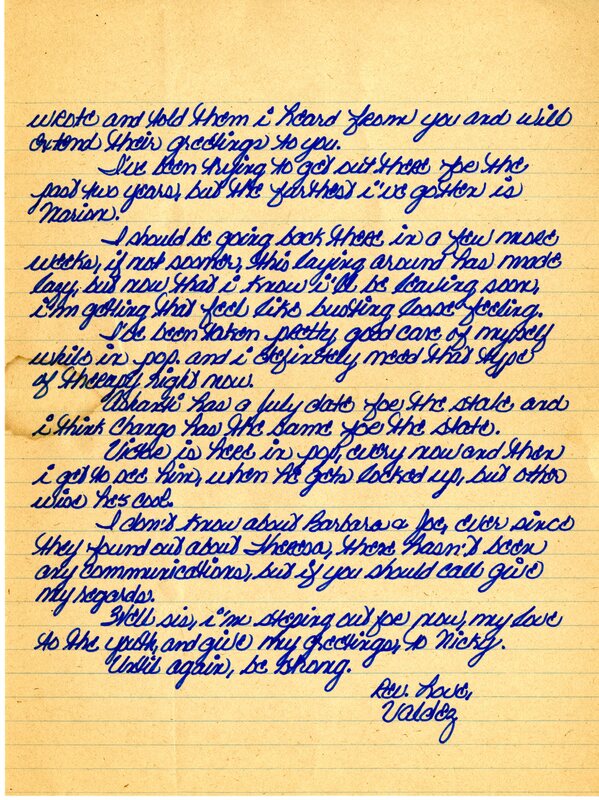 wrote and told them i heard from you and will
extend their greetings to you.
I've been trying to get out there for the
past two years, but the furthest i've gotten is
Marion.
I should be going back there in a few more
weeks, if not soomer, this laying around has made
lazy, but now that i know i'll be leaving soon,
i'm getting that feel like busting loose feeling.
I've been taken pretty good care of myself
while in pop. and i definitely need that type
of therapy right now.
Ashanti has a July date for the state and
i think Chango has the same for the state.
Victor is here in pop, every now and then
i get to see him, when he gets locked up, but other
wise he's cool.
I don't know about Barbara a Joe, ever since
they found out about Theresa, there hasn't been
any communications, but if you should call give
my regards.
Well sis, i'm steping out for now, my love
to the youth, and give my greetings, to Nicky.
Until again, be strong.
Rev. Love,
Valdez